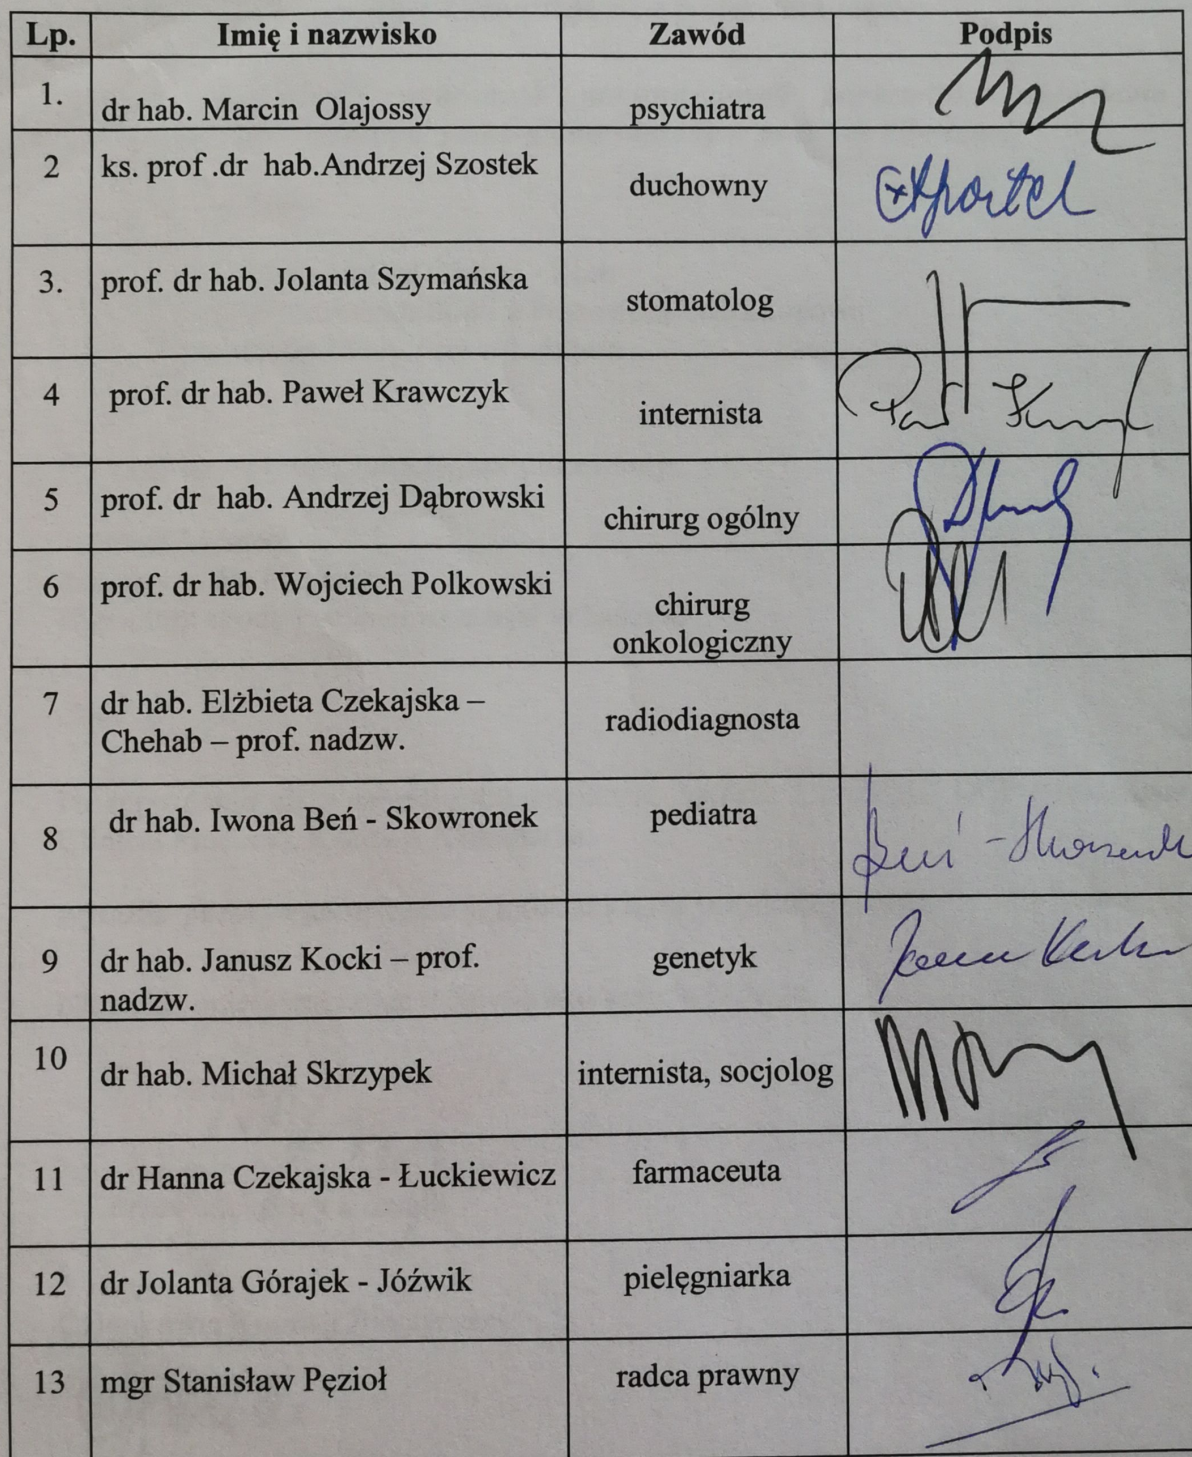 Lp. Imię i nazwisko Zawód Podpis
1. dr hab. Marcin Olajossy psychiatra
2 ks. prof .dr hab.Andrzej Szostek duchowny
3. prof. dr hab. Jolanta Szymańska stomatolog
4 prof. dr hab. Paweł Krawczyk internista
5 prof. dr hab. Andrzej Dąbrowski chirurg ogólny
6 prof. dr hab. Wojciech Polkowski chirurg
onkologiczny
7 dr hab. Elżbieta Czekajska – radiodiagnosta
Chehab – prof. nadzw.
8 dr hab. Iwona Beń - Skowronek pediatra
9 dr hab. Janusz Kocki – prof. genetyk
nadzw.
10 dr hab. Michał Skrzypek internista, socjolog
11 dr Hanna Czekajska - Łuckiewicz farmaceuta
12 dr Jolanta Górajek - Jóźwik pielęgniarka
13 mgr Stanisław Pęzioł radca prawny